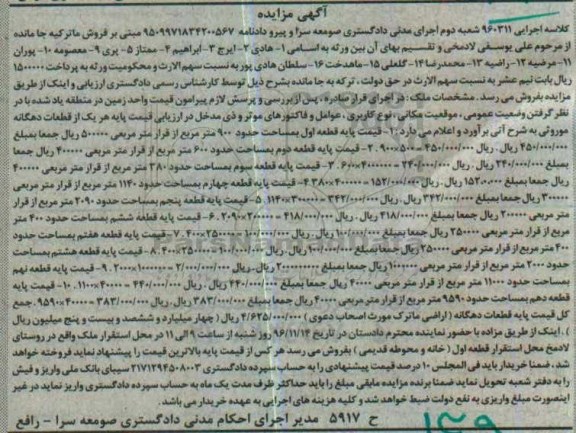 آگهی مزایده
کلاسه اجرایی ۹۶۰۳۱۱ شعبه دوم اجرای مدنی دادگستری صومعه سرا و پیرو دادنامه ۹۵۰۹۹۷۱۸۳۴۲۰۰۵۶۷ مبتنی بر فروش ماترکیه جا مانده
از مرحوم علی یوسفی لادمخی و تقسیم بهای آن بین ورثه به اسامی ۱- هادی ۲- ایرج ۳- ابراهیم ۴- ممتاز ۵- پری ۹- معصومه ۱۰- پوران
۱۱- مرضیه ۱۲- راضیه ۱۳- محمدرضا ۱۴- گلعلی ۱۵- ماهدخت ۱۶- سلطان هادی پور به نسبت سهم الارث و محکومیت ورثه به پرداخت ۱۵۰۰۰۰۰
ریال بابت نیم عشر به نسبت سهم الارث در حق دولت، ترکه به جا مانده بشرح ذیل توسط کارشناس رسمی دادگستری ارزیابی و اینک از طریق
مزایده بفروش می رسد. مشخصات ملک: در اجرای قرار صادره، پس از بررسی و پرسش لازم پیرامون قیمت واحد زمین در منطقه یاد شده با در
نظر گرفتن وضعیت عمومی، موقعیت مکانی، نوع کاربری، عوامل و فاکتورهای موثر و ذی مدخل در ارزیابی قیمت پایه هر یک از قطعات دهگانه
موروثی به شرح آتی برآورد و اعلام می دارد: ۱- قیمت پایه قطعه اول بمساحت حدود ۹۰۰ متر مربع از قرار متر مربعی ۵۰۰۰۰۰ ریال جمعا بمبلغ
۴۵۰/۰۰۰/۰۰۰ ریال. ریال ۴۵۰/۰۰۰/۰۰۰=۵۰۰۰۰۰×۹۰۰ ۲- قیمت پایه قطعه دوم بمساحت حدود ۶۰۰ متر مربع از قرار متر مربعی ۴۰۰۰۰۰ ریال جمعا
بمبلغ ۲۴۰/۰۰۰/۰۰۰ ریال. ریال ۲۴۰/۰۰۰/۰۰۰=۴۰۰۰۰۰×۶۰۰ ۳- قیمت پایه قطعه سوم بمساحت حدود ۳۸۰ متر مربع از قرار متر مربعی ۴۰۰۰۰۰
ریال جمعا بمبلغ ۱۵۲/۰۰۰/۰۰۰ ریال. ریال ۱۵۲/۰۰۰/۰۰۰=۴۰۰۰۰۰×۳۸۰ ۴- قیمت پایه قطعه چهارم بمساحت حدود ۱۱۴۰ متر مربع از قرار متر مربعی
۳۰۰۰۰۰ ریال جمعا بمبلغ ۳۴۲/۰۰۰/۰۰۰ ریال. ریال ۳۴۲/۰۰۰/۰۰۰=۳۰۰۰۰۰×۱۱۴۰ ۵- قیمت پایه قطعه پنجم بمساحت حدود ۲۰۹۰ متر مربع از قرار
متر مربعی ۲۰۰۰۰۰ ریال جمعا بمبلغ ۴۱۸/۰۰۰/۰۰۰ ریال. ریال ۴۱۸/۰۰۰/۰۰۰=۲۰۰۰۰۰×۲۰۹۰ ۶- قیمت پایه قطعه ششم بمساحت حدود ۴۰۰ متر
مربع از قرار متر مربعی ۲۵۰۰۰۰ ریال جمعا بمبلغ ۱۰۰/۰۰۰/۰۰۰ ریال. ریال ۱۰۰/۰۰۰/۰۰۰=۲۵۰۰۰۰×۴۰۰ ۷- قیمت پایه قطعه هفتم بمساحت حدود
۴۰۰ متر مربع از قرار متر مربعی ۲۵۰۰۰۰ ریال جمعا بمبلغ ۱۰۰/۰۰۰/۰۰۰ ریال. ریال ۱۰۰/۰۰۰/۰۰۰=۲۵۰۰۰۰×۴۰۰ ۸- قیمت پایه قطعه هشتم بمساحت
حدود ۲۰۰۰ متر مربع از قرار متر مربعی ریال جمعا بمبلغ ریال. ریال ۹- قیمت پایه قطعه نهم
بمساحت حدود ۱۱۰۰۰ متر مربع از قرار متر مربعی ۴۰۰۰۰ ریال جمعا بمبلغ ۴۴۰/۰۰۰/۰۰۰ ریال. ریال ۴۴۰/۰۰۰/۰۰۰=۴۰۰۰۰× ۱۰- قیمت پایه
قطعه دهم بمساحت حدود ۹۵۹۰ متر مربع از قرار متر مربعی ۴۰۰۰۰ ریال جمعا بمبلغ ۳۸۳/۰۰۰/۰۰۰ ریال. ریال ۳۸۳/۰۰۰/۰۰۰=۴۰۰۰۰×۹۵۹۰. جمع
کل قیمت پایه قطعات دهگانه (اراضی ماترک مورث اصحاب دعوی) ۴/۶۲۵/۰۰۰/۰۰۰ ریال (چهار میلیارد و ششصد و بیست و پنج میلیون ریال
). اینک از طریق مزاده با حضور نماینده محترم دادستان در تاریخ ۹۶/۱۱/۱۴ روز شنبه از ساعت ۹ الی ۱۱ در محل استقرار ملک واقع در روستای
لادمخ محل استقرار قطعه اول (خانه و محوطه قدیمی) بفروش می رسد هر کس از قیمت پایه بالاترین قیمت را پیشنهاد نماید فروخته خواهد
شد، ضمنا خریدار باید فی المجلس ۱۰ درصد قیمت پیشنهادی را به حساب سپرده دادگستری ۲۱۷۱۲۹۴۵۰۸۰۰۳ سیبای بانک ملی واریز و فیش
را به دفتر شعبه تحویل نماید ضمنا برنده مزایده مابقی مبلغ را باید حداکثر ظرف مدت یک ماه به حساب سپرده دادگستری واریز نماید در غیر
اینصورت مبلغ واریزی به نفع دولت ضبط خواهد شد و کلیه هزینه های اجرایی به عهده خریدار می باشد.
ح ۵۹۱۷ مدیر اجرای احکام مدنی دادگستری صومعه سرا - رافع